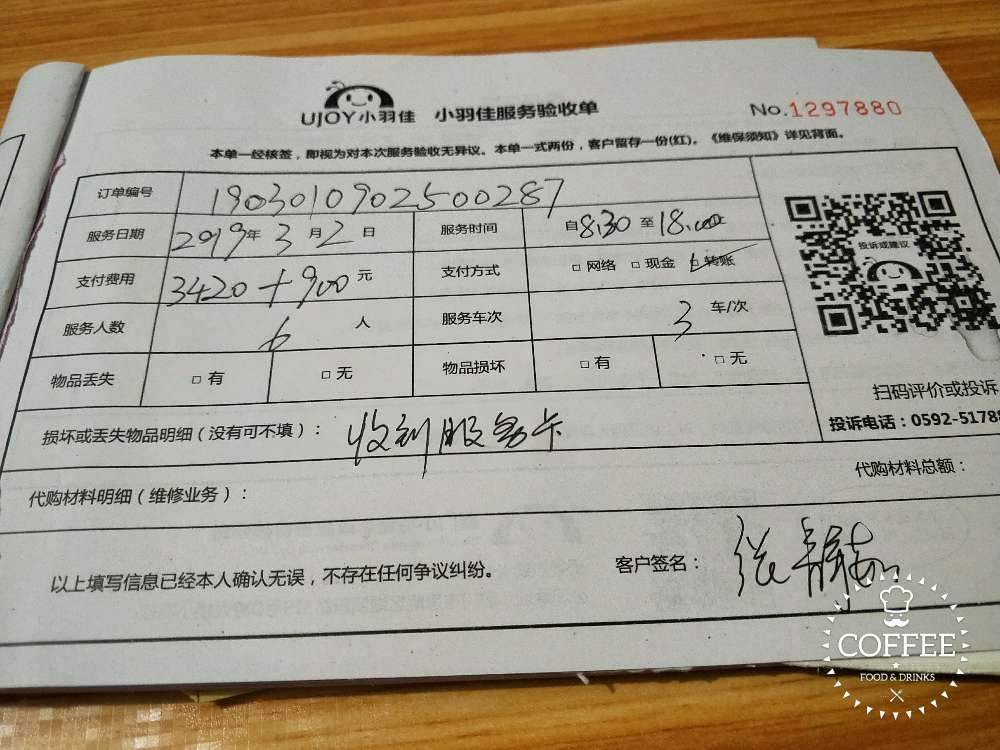 UJOY小羽佳 小羽佳服务验收单 No.1297880
本单一经核签，即视为对本次服务验收无异议。本单一式两份，客户留存一份(红)。《维保须知》详见背面。
订单编号 1903010902500287
服务日期 2019年 3月 2日 服务时间 自8:30 至18:00
支付费用 3420+900元 支付方式 □ 网络 □ 现金 □ 转账
服务人数 6 人 服务车次 3 车/次
物品丢失 □ 有 □ 无 物品损坏 □ 有 □ 无
投诉或建议
扫码评价或投诉
投诉电话：0592-5178
损坏或丢失物品明细（没有可不填）： 收到服务卡
代购材料明细（维修业务）： 代购材料总额：
以上填写信息已经本人确认无误，不存在任何争议纠纷。 客户签名： 张
COFFEE
FOOD & DRINKS